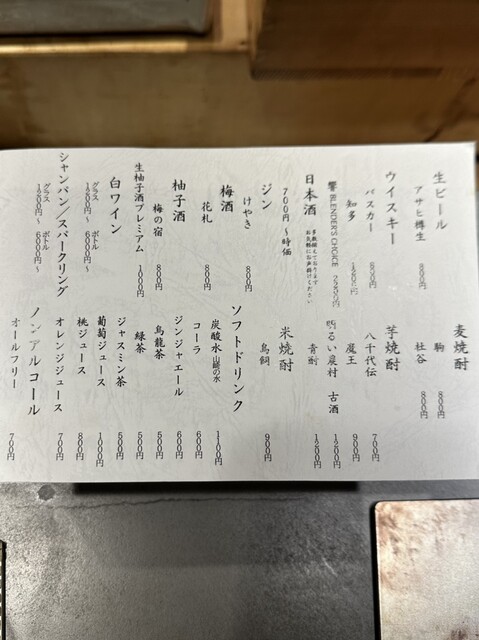 生ビール
アサヒ樽生 800円
ウイスキー
バスカー 800円
知多 1500円
響 BLENDER'S CHOICE 2800円
日本酒
700円〜時価
多数揃えております
お気軽にお声掛けください
ジン
けやき 800円
梅酒
花札 800円
柚子酒
梅の宿 800円
生柚子酒プレミアム 1000円
白ワイン
グラス 1200円〜 ボトル 6000円〜
シャンパン/スパークリング
グラス 1200円〜 ボトル 6000円〜
麦焼酎
駒 800円
杜谷 800円
芋焼酎
八千代伝 700円
魔王 900円
明るい農村 古酒 1200円
青酎 1200円
米焼酎
鳥飼 900円
ソフトドリンク
炭酸水 山崎の水 1100円
コーラ 600円
ジンジャエール 600円
烏龍茶 500円
緑茶 500円
ジャスミン茶 500円
葡萄ジュース 1000円
桃ジュース 800円
オレンジジュース 700円
ノンアルコール
オールフリー 700円